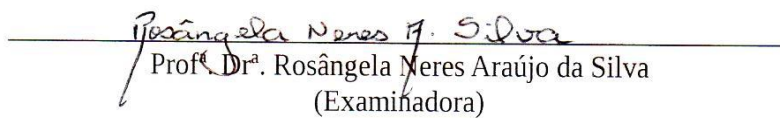 Rosângela Neres A. Silva
Profª. Drª. Rosângela Neres Araújo da Silva
(Examinadora)